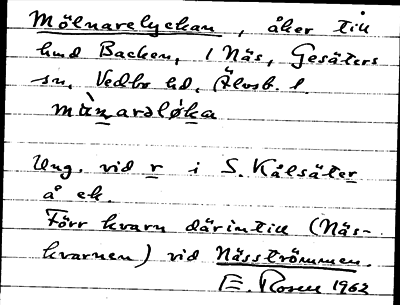 Mölnarelyckan, åker till
hmd Backen, i Näs, Gesäters
sn, Vedbo hd, Älvsb. l.
mò̤ṉarəlø̀ka
Ung. vid r i S. Kålsäter
å ek.
Förr kvarn därintill (Näs-
kvarnen) vid Näsströmmen.
E. Rosen 1962